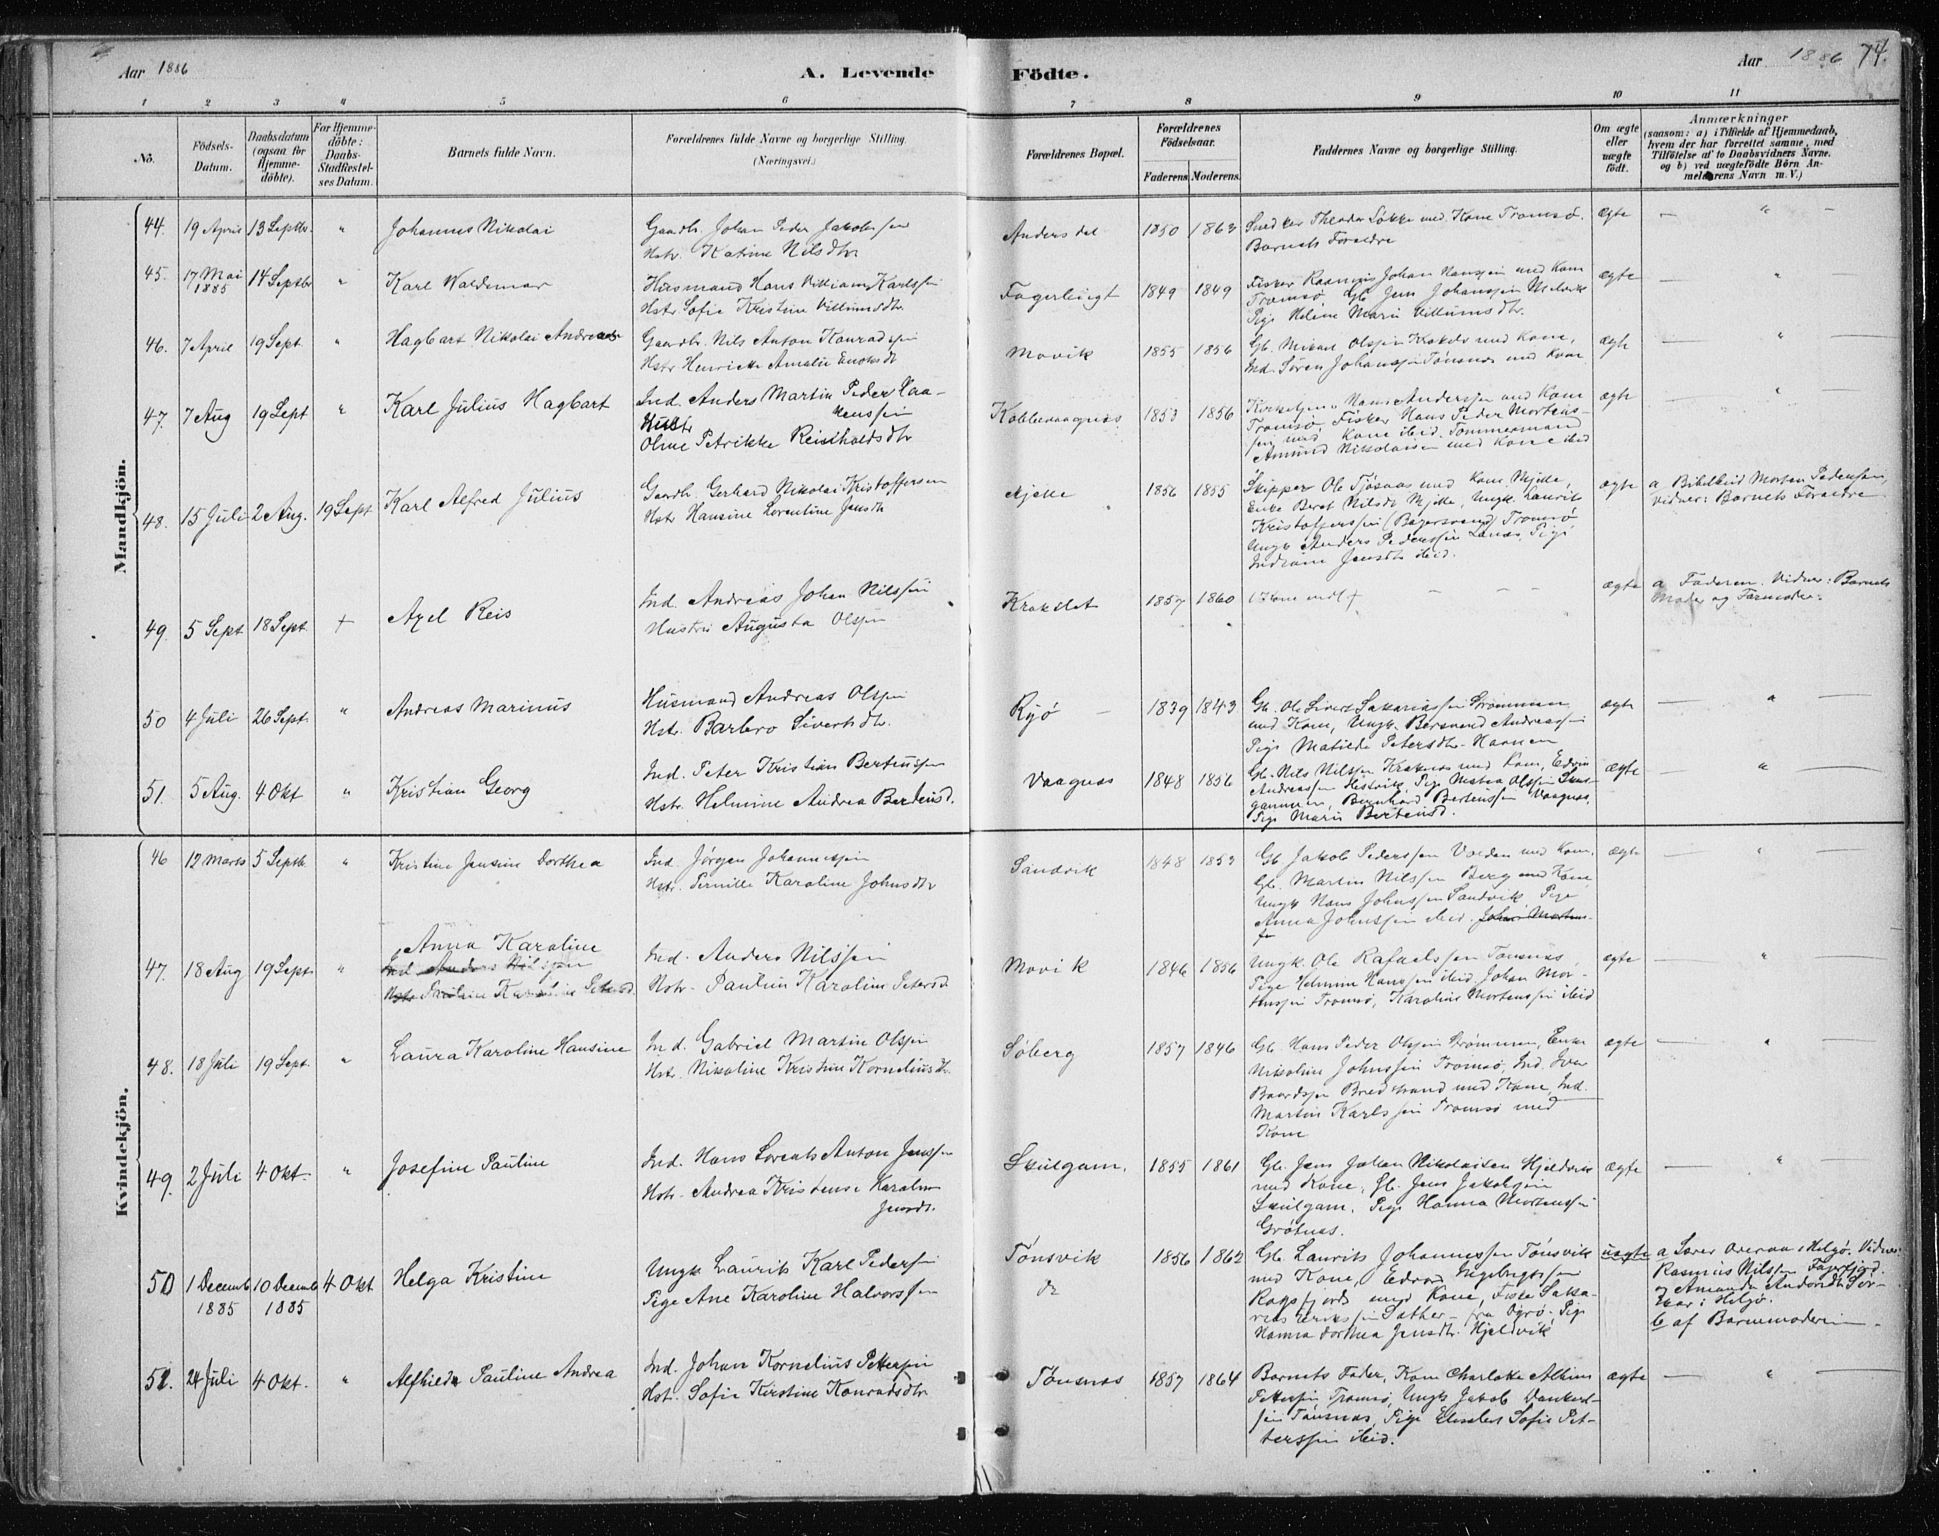 Aar 1886
A. Levende Födte.
Aar 1886
74.
1 2 3 4 5 6 7 8 9 10 11
Nō.
Födsels-
Datum.
Daabsdatum
(ogsaa for
Hjemme-
döbte).
For Hjemme-
döbte:
Daabs-
Stadfæstel-
ses Datum.
Barnets fulde Navn.
Forældrenes fulde Navne og borgerlige Stilling.
(Næringsvei.)
Forældrenes Bopæl.
Forældrenes
Födselsaar.
Faderens. Moderens.
Faddernes Navne og borgerlige Stilling.
Om ægte
eller
uægte
födt.
Anmærkninger
(saasom: a) i Tilfælde af Hjemmedaab,
hvem der har forrettet samme, med
Tilföielse af to Daabsvidners Navne.
og b) ved uægtefödte Börn An-
melderens Navn m. V.)
Mandkjön.
44. 19 April 13 Septbr. " Johannes Nikolai
Gaardbr. Johan Peder Jakobssen
Hstr. Katrine Nilsdtr
Andersdal 1850 1863
Snedker Theodor Løkke med Kone Tromsø.
Barnets Forældre
ægte — " —
45. 17 Mai 14 Septbr " Karl Waldemar
1885
Husmand Hans Villiam Karlssen
Hstr. Sofie Kristine Villumsdtr.
Fagerligt 1849 1849
Fisker Rasmus Johan Hanssen med Kone
Tromsø, Gb. Jens Johanssen
Pige Heline Marie Villumsdtr.
ægte — "
46. 7 April 19 Sept " Hagbart Nikolai Andreas
Gaardbr. Nils Anton Konradssen
Hstr Henrikke Amalie Enoksdt
Movik 1855 1856
Gb. Mikael Olssen med Kone,
Ind. Søren Johanssen Tønsnæs med Kone
ægte — " —
47. 7 Aug 19 Sept " Karl Julius Hagbart
Ind. Anders Martin Peder Haa-
kenssen
Hustr
Oline Petrikke Reinholdsdtr
Kobbevaagnæs 1853 1856
Hans Anderssen med Kone
Tromsø, Fisker Hans Peder Mortens-
sen med Kone ibid. Tømmermand
Amund Nikolaisen med Kone ibid
ægte — " —
48. 15 Juli 2 Aug. 19 Sept Karl Alfred Julius
Gaardb. Gerhard Nikolai Kristoffersen
Hstr Hansine Lorentine Jensdt
Mjelle 1856 1855
Skipper Ole Tønsnæs med Kone Mjelle,
Enke Beret Nilsdt. Mjelle, Ungk. Laurits
Kristofferssen Tromsø
Ungk Anders Pederssen Lanæs, Pige
Indiane Jensdtr ibid.
ægte a. Bibelbud Morten Pederssen,
Vidner: Barnets Forældre
49. 5 Sept 18 Sept + Axel Reis
Ind. Andreas Johan Nilssen
Hustru Augusta Olssen
Krokslet 1857 1860
— — —
ægte a. Faderen. Vidner: Barnets
Moder og Farmoder.
50 4 Juli 26 Sept. " Andreas Marinus
Husmand Andreas Olssen
Hstr. Barbro Sivertsdtr.
Ryø — 1839 1843
Gb. Ole Sivert Sakariassen Strømmen
med Kone, Ungk. Andreassen
Pige Matilde Petersdtr. Havnen
ægte — " —
51. 5 Aug. 4 Okt " Kristian Georg
Ind. Peter Kristian Bertenssen
Hstr. Helmine Andrea Bertensd.
Vaagnæs 1848 1856
Gb. Nils Nilssen Kraknæs med Kone, Edvin
Andreassen Olssen Skul-
gammen, Bernhard Bertenssen Vaagnæs,
Pige Marie Bertensd.
ægte — " —
Kvindekjön.
46 12 Marts 5 Septb. " Kristine Jensine Dorthea
Ind. Jørgen Johannessen
Hstr. Pernille Karoline Johnsdtr
Sandvik 1848 1853
Gb Jakob Pederssen Volden med Kone.
Gb. Martin Nilssen Berg med Kone
Ungk Hans Johnssen Sandvik Pige
Anna Johnssen ibid.
ægte — " —
47. 18 Aug 19 Sept. " Anna Karoline
Ind Anders Nilssen
Hstr Pauline Karoline Petersd.
Ind. Anders Nilssen
Hstr. Pauline Karoline Petersd
Movik 1846 1856
Ungk. Ole Rafaelssen Tønsnæs,
Pige Helmine Hanssen ibid. Johan Mor-
tenssen Tromsø, Karoline Mortenssen ibid
ægte — " —
48. 18 Juli 19 Sept. " Laura Karoline Hansine
Ind. Gabriel Martin Olssen
Hstr. Nikoline Kristine Korneliusdtr.
Søberg 1857 1846
Gb. Hans Peder Olssen Strømmen, Enke
Nikoline Johnssen Tromsø, Ind. Iver
Baardssen Bredstrand med Kone, Ind.
Martin Karlssen Tromsø med
Kone
ægte — " —
49. 2 Juli 4 Okt. " Josefine Pauline
Ind. Hans Lorents Anton Jenssen
Hstr. Andrea Kristense Karoline
Jensdt.
Skulgam. 1855 1861
Gb. Jens Johan Nikolaisen Hjeldvik
med Kone, Gb. Jens Jakobssen
Skulgam, Pige Hanna Mortenssen
Grøtnæs.
ægte — " —
50 1 Decemb 10 Decemb 4 Okt Helga Kristine
1885 1885
Ungk Laurits Karl Pederssen
Pige Ane Karoline Halvorssen
Tønsvik 1856 1862
Do
Gb. Laurits Johannessen Tønsvik
med Kone, Edvard Ingebrigtssen
Ragsfjord med Kone, Fisker Saka-
rias Erikssen Sæther — fra Pige
Hanna Dorthea Jensdtr. Hjeldvik
uægte a Søren Overaa i Helgø. Vidner:
Rasmus Nilssen Fagerfjord
og Amanda
i Helgø.
b af Barnemoderen.
51. 24 Juli 4 Okt. " Alfhilda Pauline Andrea
Ind. Johan Kornelius Petterssen
Hst. Sofie Kirstine Konradsdtr
Tønsnæs 1857 1864
Barnets Fader, Kone Charlotte Albine
Petterssen Tromsø, Ungk Jakob Dankert-
sen Tønsnæs, Pige Elisabet Sofie Pet-
terssen ibid.
ægte — " —